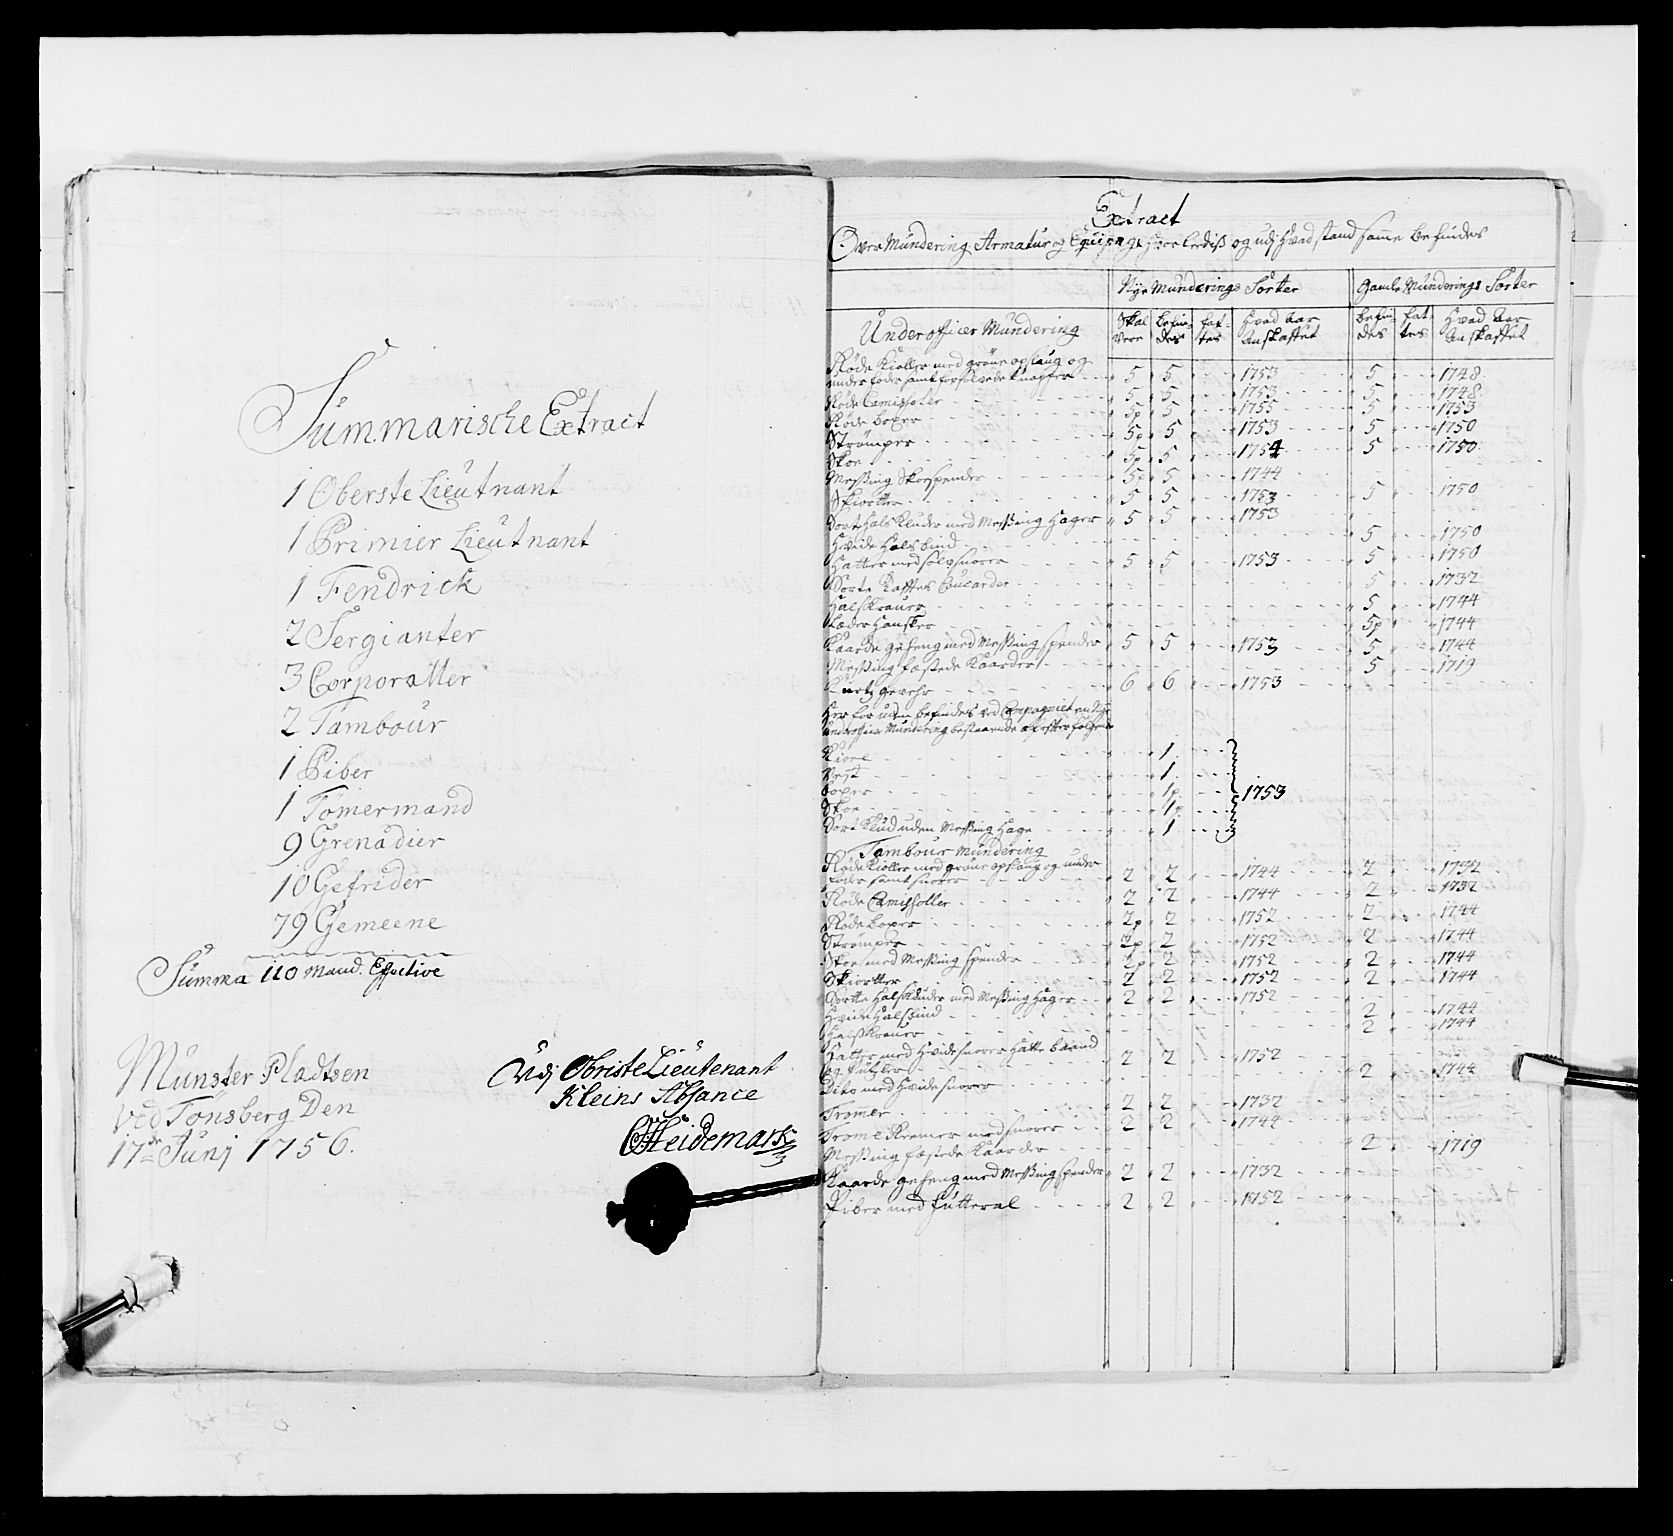 Summarische Extract
1 Oberste Lieutnant
1 Primier Lieutnant
1 Fendrick
2 Sergianter
3 Corporaller
2 Tambour
1 Piber
1 Tømermand
9 Grenadier
10 Gefrider
79 Gemeene
Summa 110 Mand. Effective
Münster Pladtsen
ved Tønsberg Den
17de Junj 1756.
Udj Obriste Lieutenant
Kleins Absance
Heidemark
Extract
Over Mundering Armatur og Equipage hvorledis og udj hvad stand samme befindes
Nye Munderings Sorter Gamle Munderings Sorter
Underofficer Mundering Skal være Befindes fattes hvad aar anskaffet Befindes fattes hvad aar anskaffet
Røde Kioller med grøne opslaug og
under foder samt forsølvede knapper 5 5 1753 5 1748
Røde Camisholer 5 5 1753 5 1748
Røde boxer 5p 5 1755 5 1753
Strømper 5p 5 1753 5 1750
Skoe 5p 5 1754 5 1750
Messing Skoespender 5p 5 1744
Skiortter 5 5 1753 5 1750
Sort Hals Kluder med Messing Hager 5 5 1753
Hvide Hals bind 5 1750
Hatter med sølvsnorer 5 5 1753 5 1750
Sorte Kasttes Coucarder 5 1732
Hals Krauer 5 1744
Læder Hansker 5p 1744
Kaarde geheng med Messing spender 5 5 1753 5 1744
Messing fæstede Kaarder 5 1719
Kurtz gevehr 6 6 1753
Her for uden befindes ved Compagniet en Nye
underofficer Mundering bestaaende af efter følgende
Kiorel 1
Vest 1
boxer 1p 1753
Skoe 1p
Sort Klud uden Messing Hage 1
Tambour Mundering
Røde Kioller med grøne opslaug og under
foder samt snorer 2 2 1744 2 1732
Røde Camisholler 2 2 1744 2 1732
Røde boxer 2p 2 1752 2 1744
Strømper 2p 2 1752 2 1744
Skoe med Messing spender 2p 2 1752 2 1744
Skiortter 2 2 1752 2 1744
Sortte Hals Kluder med Messing Hager 2 2 1752
Hvide Halsbind 2 1744
Hals Krauer 2 1744
Hatter med Hvide snorer Hatte baand
og 2 2 1752 2 1744
Dito med Hvide snorer
Tromer 2 2 1732
Trome Remer med snorer 2 2 1744
Messing fæstede Kaarder 2 1719
Kaarde geheng med Messing spender 2 2 1732
Piber med Futteral 2 2 1752